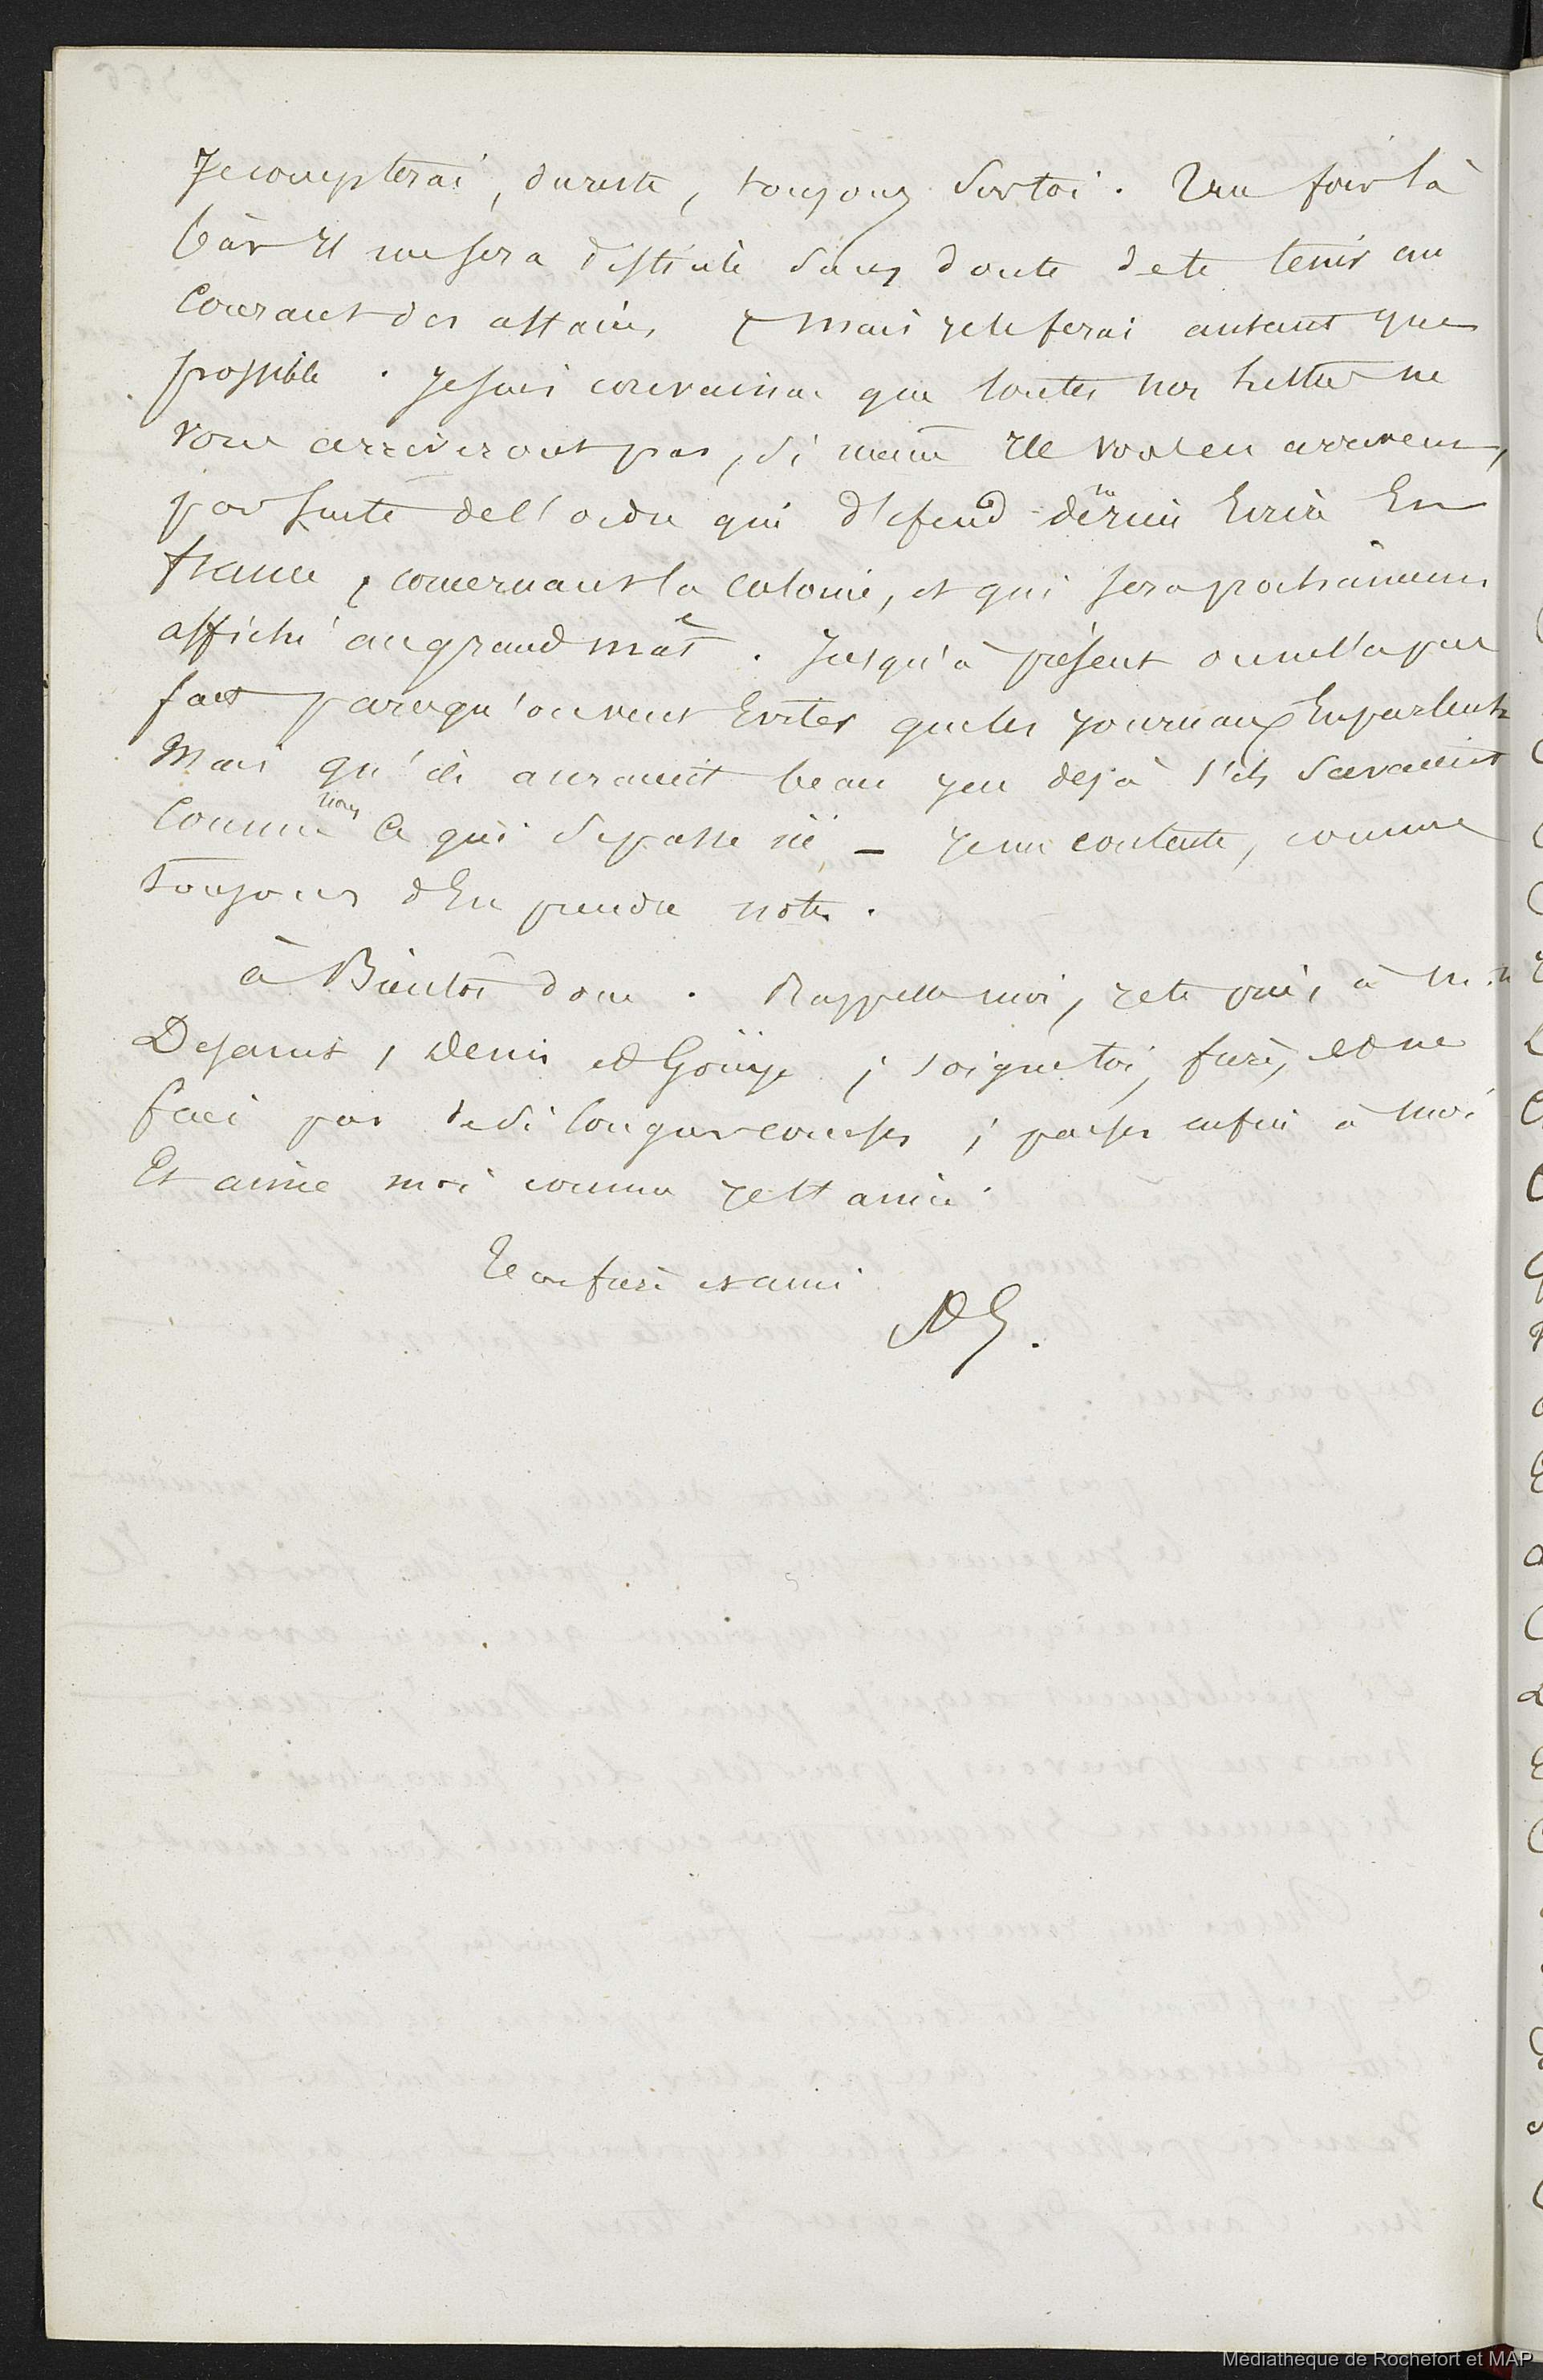 Je compterai, du reste, toujours sur toi. Une fois là
bàs il me sera difficile sans doute de te tenir au
Courant des affaires & mais je le ferai autant que
possible. Je suis convaincu que toutes nos lettres ne
vous arriveront pas, si même elle vous en arrivent,
par suite de l'ordre qui défend de rien Ecrire En
france, concernant la colonie, et qui sera prochainement
affiché au grand mât. Jusqu'à présent on ne l'a pas
fait parcequ'on veut Eviter que les journaux En parlent
Mais qu'ils auraient beau jeu dejà s'ils savaient
Comme nous ce qui se passe ici – je me contente, comme
toujours d'En prendre note.
à Bientôt donc. Rappelle moi, je te prie, à M.M
Dejarnis, Denis et Gouye ; soigne toi, frère, et ne
fais pas de si longues courses ; penses enfin à moi
Et aime moi comme je t'aime.
Ton frère et ami
AG.
Médiathèque de Rochefort et MAP